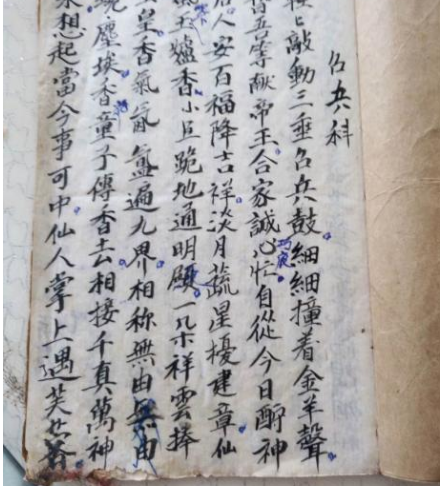 召兵科
上敲動三垂召兵鼓細細撞着金羊聲
等献帝王合家誠心忙自從今日酧神
人安百福降吉祥淡月蔬星擾建章仙
爐香小臣跪地通明一朵祥雲捧
皇香氣氤氳遍九界相称無由無由
塵埃香童子傳香去相接千真萬神
想起當今事可中仙人掌上遇芙蓉